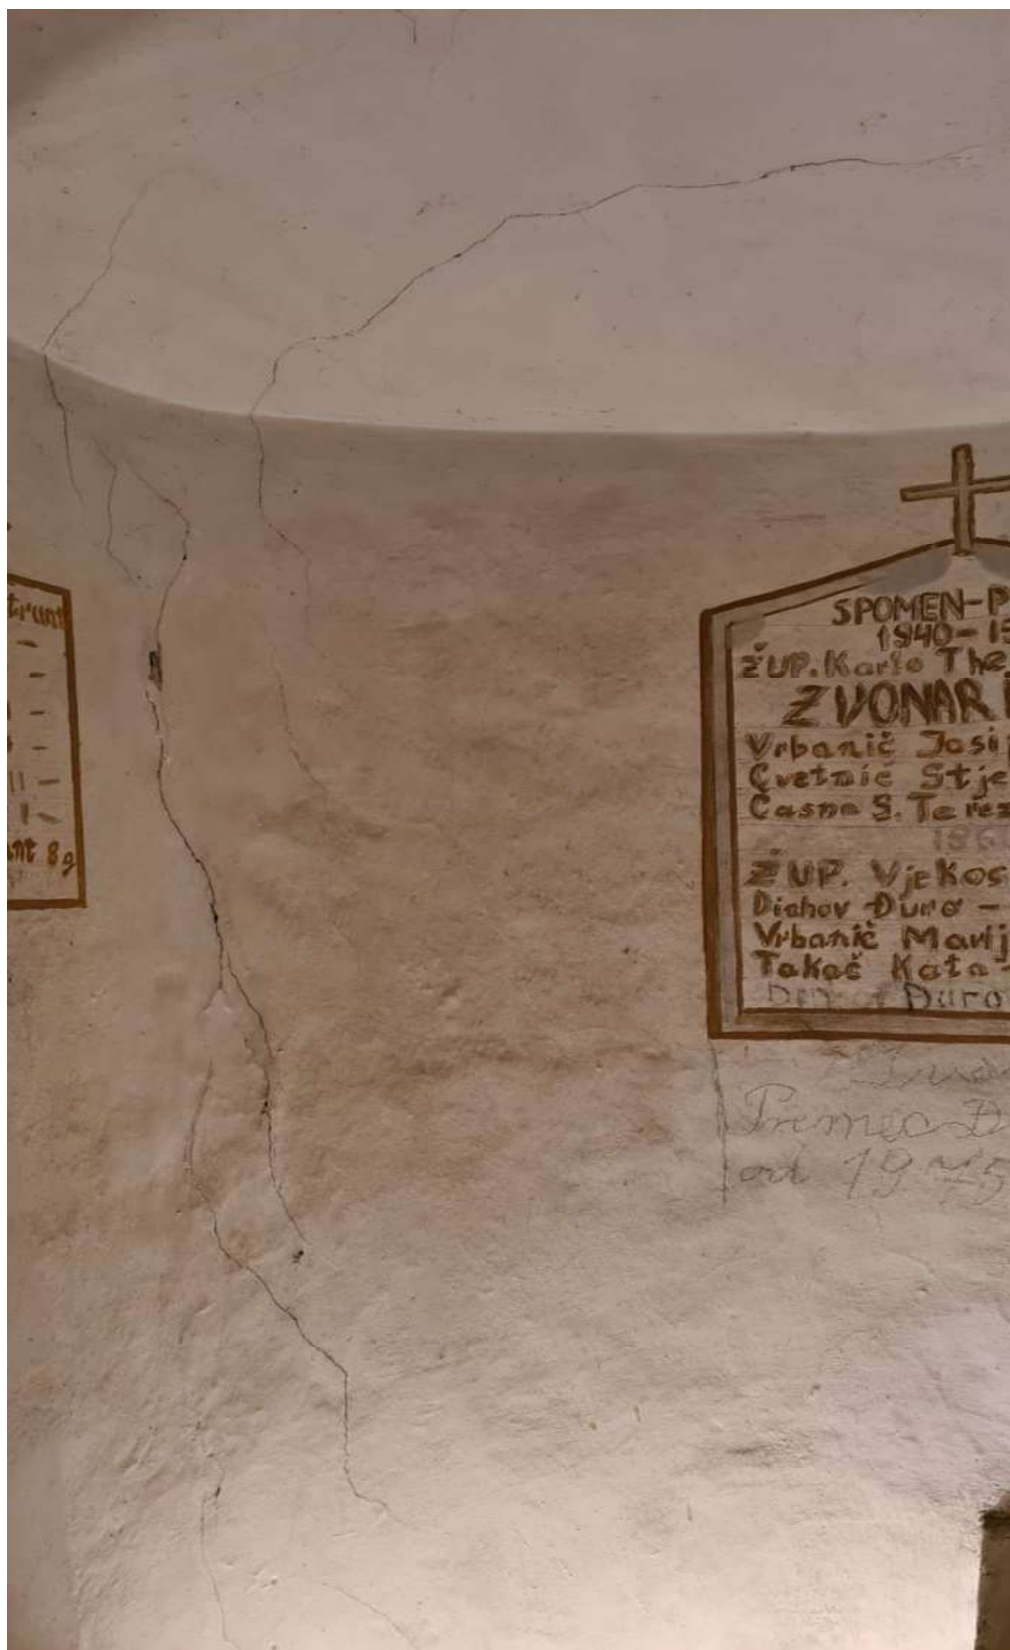 trunt
-
-
-
-
II -
I -
unt 8g
SPOMEN-P
1940-19
ŽUP. Karlo The
ZVONAR
Vrbanič Josi
Cvetnić Stje
Časna S. Terez
186
ŽUP. VjeKos
Diahov Đuro -
Vrbanič Marij
Takač Kata -
Đuro
Premec Đ
od 1975